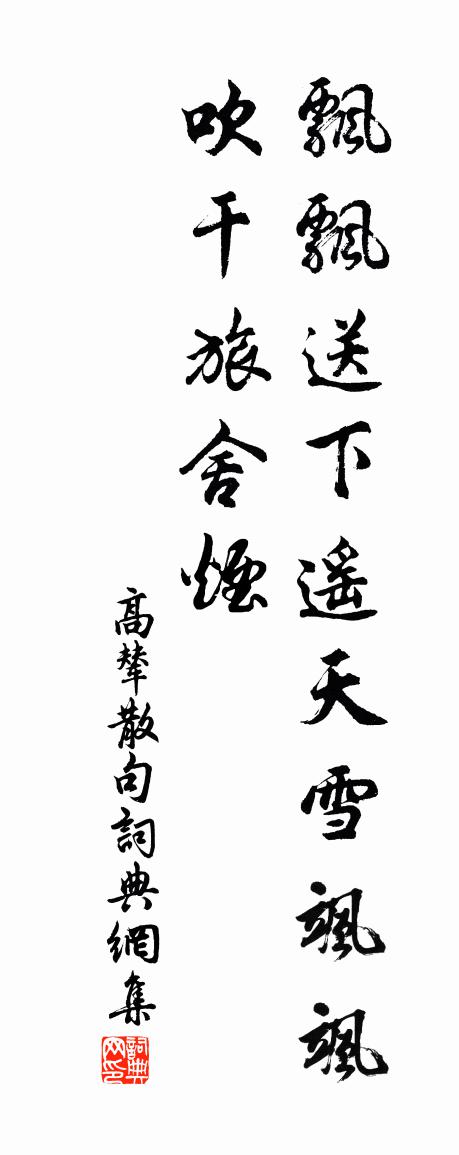 飄飄送下遥天雪颯颯
吹干旅舍煙
高輦散句詞典網集
詞典网印